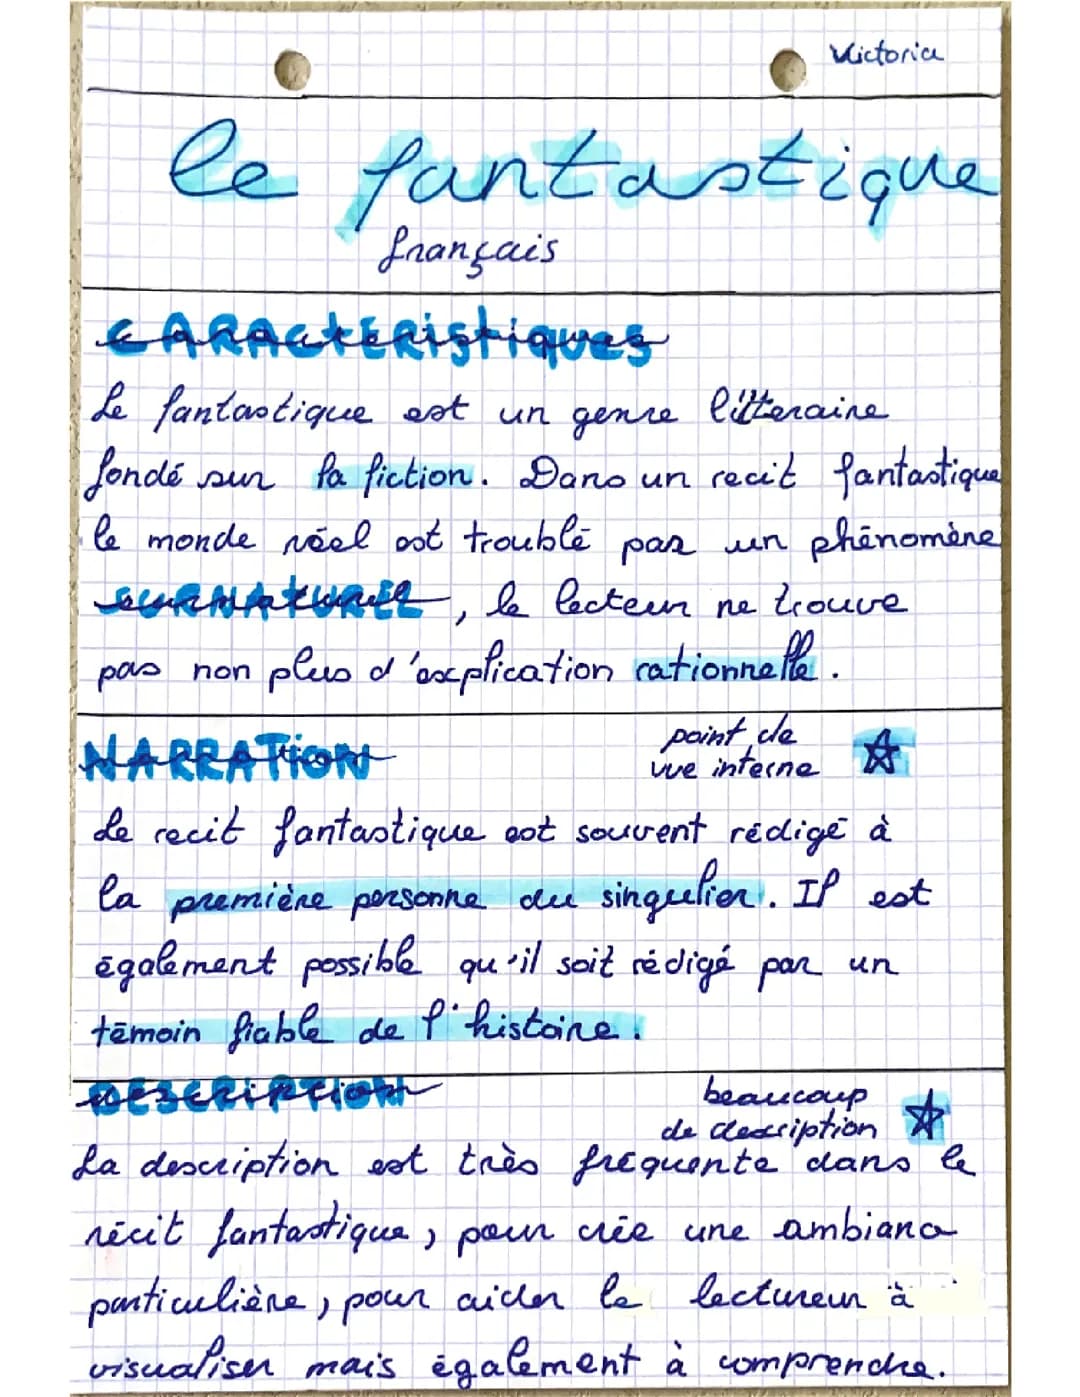 Victoria
le fantastique
français
CARACtERistiques
Le fantastique est un genre litteraire
fondé sur la fiction. Dans un recit fantastique
le monde réel est troublé par un phénomène
SURNATUREL, le lecteur ne trouve
pas non plus d'explication rationnelle.
NARRATION
point de
vue interne
Le recit fantastique est souvent rédigé à
la première personne du singulier. Il est
également possible qu'il soit rédigé par un
témoin fiable de l'histoire.
DESCRIPTION
beaucoup
de description
La description est très fréquente dans le
récit fantastique, pour crée une ambiance
particulière, pour aider le lectureur à
visualiser mais également à comprendre.